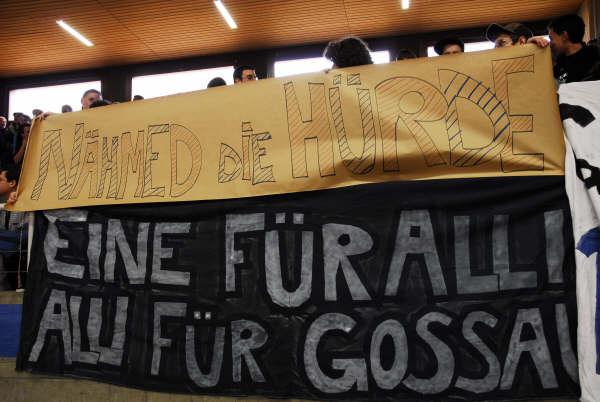 NÄHMED DIE HÜRDE
EINE FÜR ALLI
ALLI FÜR GOSSAU